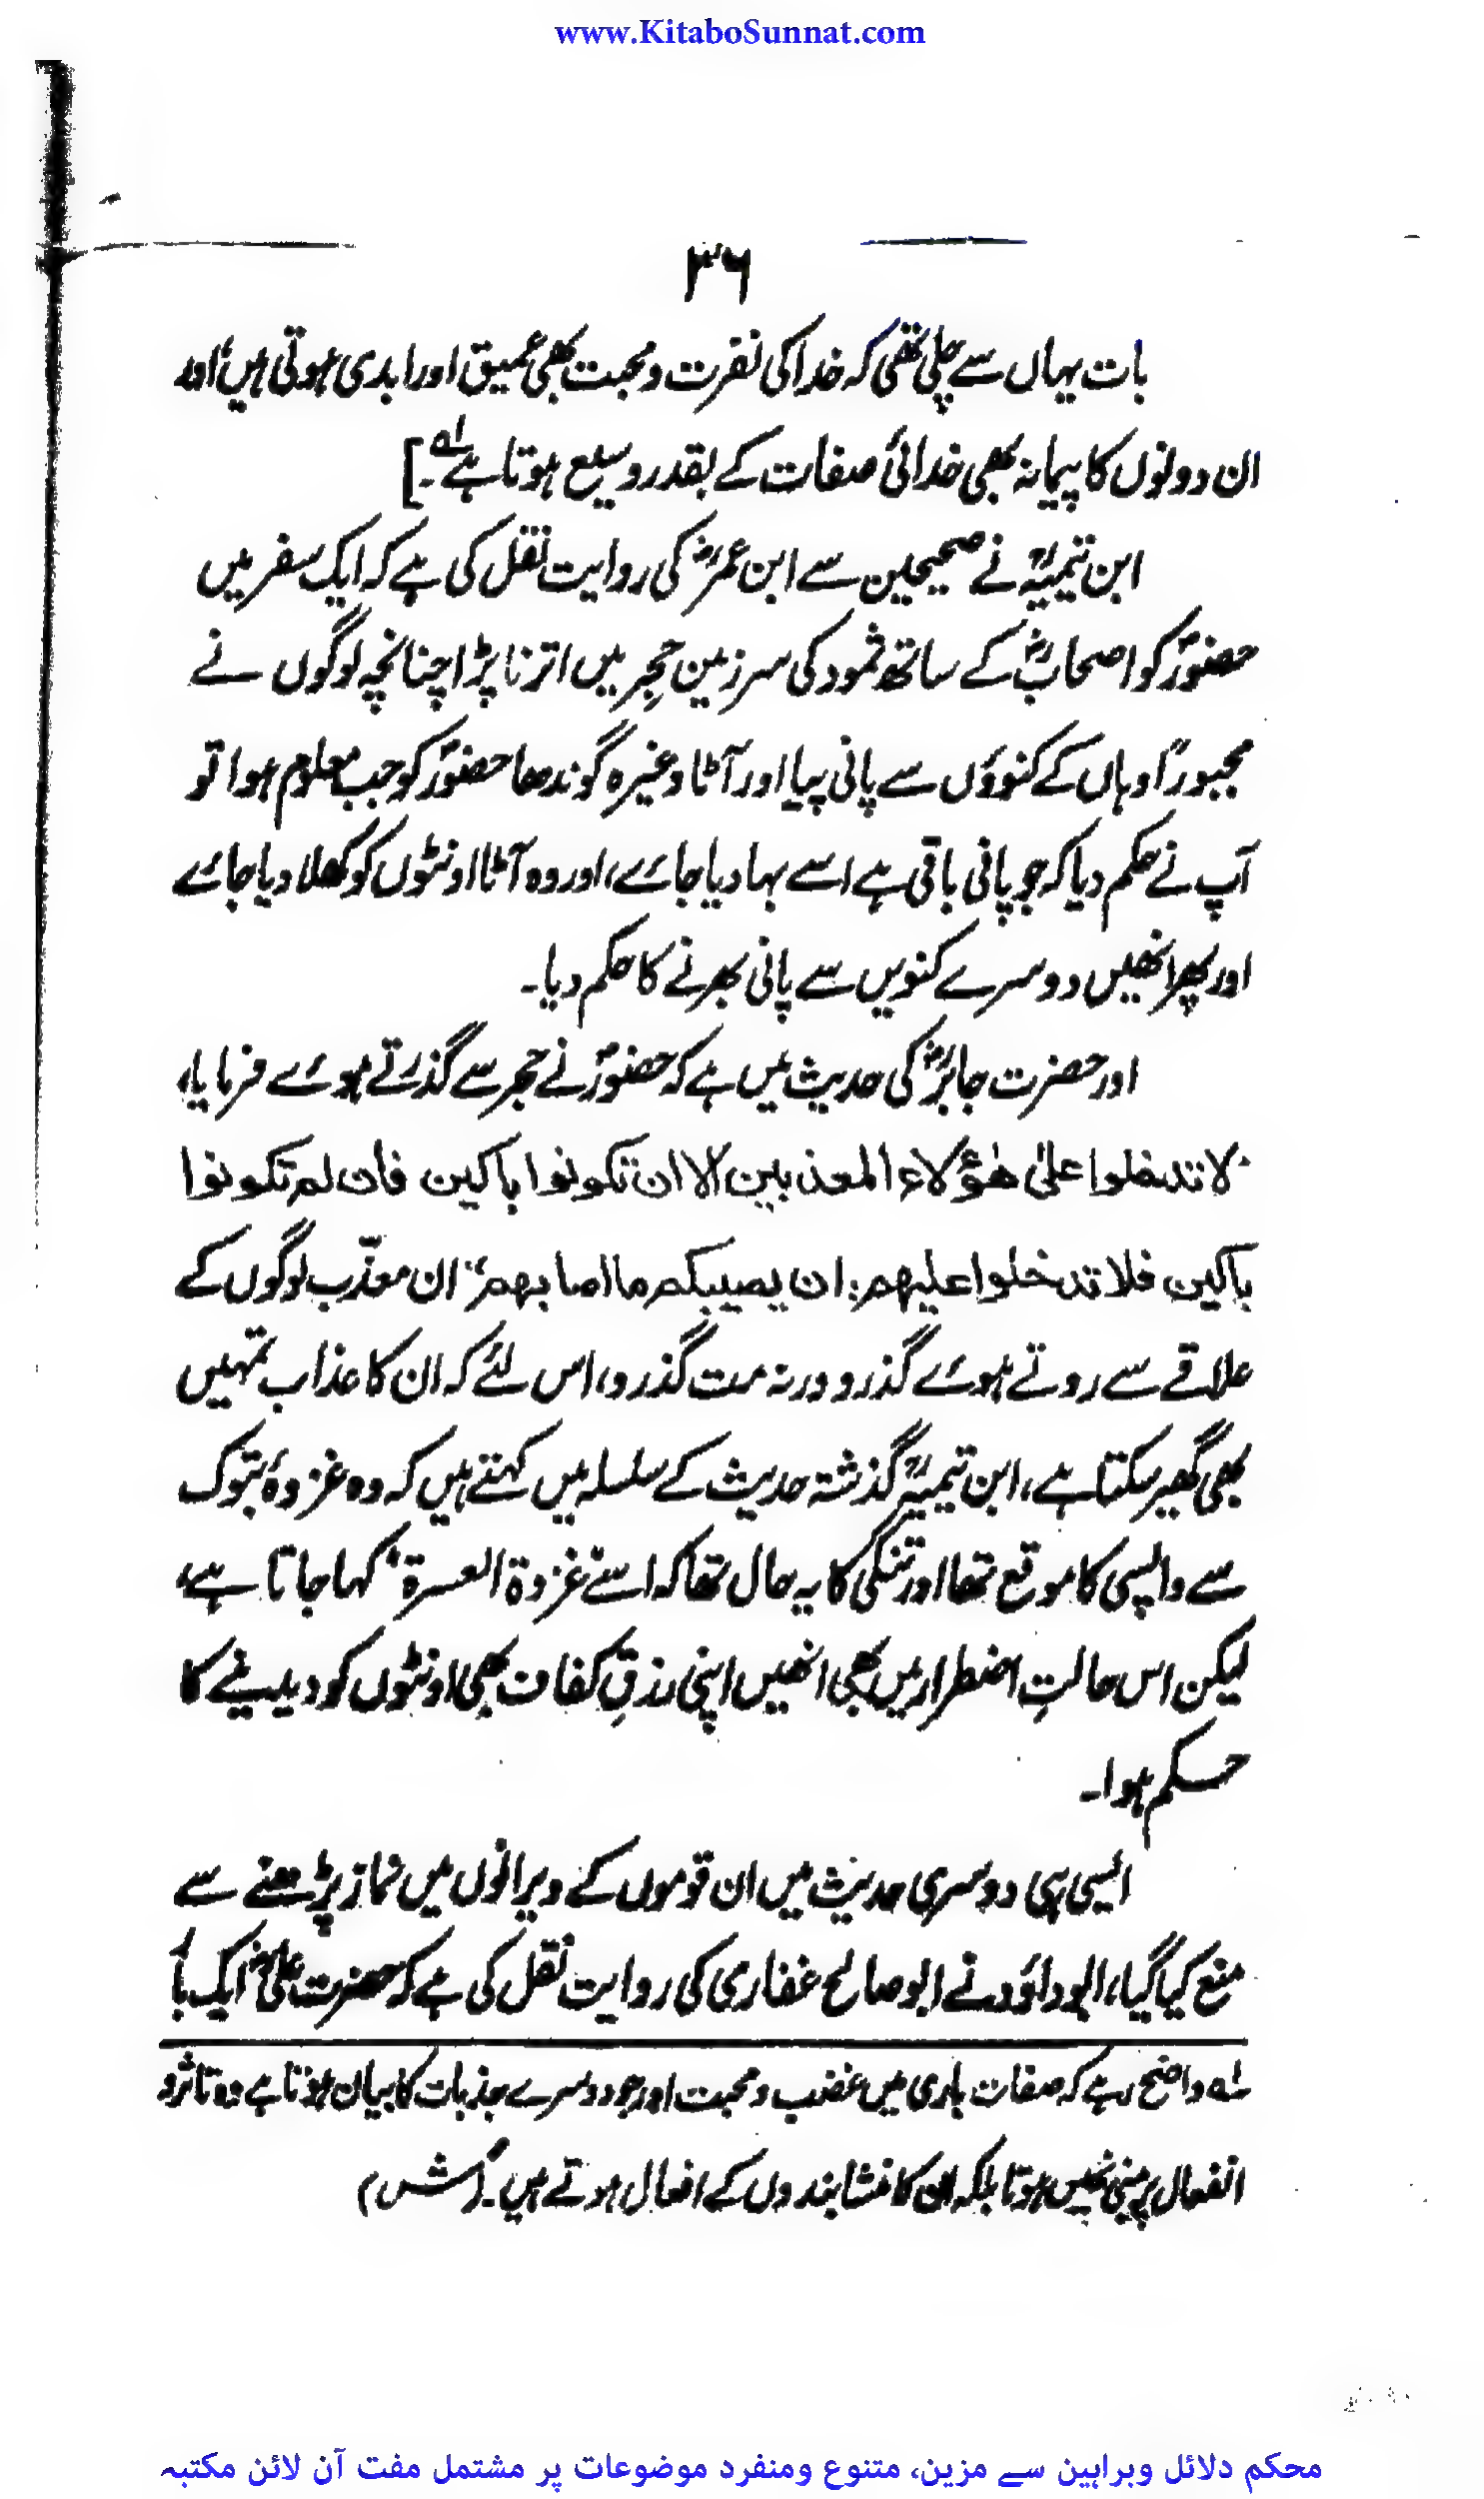 www.KitaboSunnat.com
۳۶
بات یہاں سے چلی تھی کہ خدا کی نفرت و محبت بھی عمیق اور ابدی ہوتی ہیں، اور
ان دونوں کا پیمانہ بھی خدائی صفات کے بقدر وسیع ہوتا ہے لہ۔]
ابن تیمیہؒ نے صحیحین سے ابن عمرؓ کی روایت نقل کی ہے کہ ایک سفر میں
حضورؐ کو اصحابؓ کے ساتھ ثمود کی سرزمین حِجر میں اترنا پڑا چنانچہ لوگوں نے
مجبوراً وہاں کے کنوؤں سے پانی پیا اور آٹا وغیرہ گوندھا حضورؐ کو جب معلوم ہوا تو
آپ نے حکم دیا کہ جو پانی باقی ہے اسے بہا دیا جائے، اور وہ آٹا اونٹوں کو کھلا دیا جائے
اور پھر انھیں دوسرے کنویں سے پانی بھرنے کا حکم دیا۔
اور حضرت جابرؓ کی حدیث میں ہے کہ حضورؐ نے حجر سے گذرتے ہوئے فرمایا،
'لا تدخلوا علیٰ ھٰؤلاء المعذبین الا ان تکونوا باکین فان لم تکونوا
باکین فلا تدخلوا علیھم: ان یصیبکم ما اصابھم' ان معذّب لوگوں کے
علاقے سے روتے ہوئے گذرو ورنہ مت گذرو، اس لئے کہ ان کا عذاب تمہیں
بھی گھیر سکتا ہے، ابن تیمیہؒ گذشتہ حدیث کے سلسلہ میں کہتے ہیں کہ وہ غزوۂ تبوک
سے واپسی کا موقع تھا اور تنگی کا یہ حال تھا کہ اسے غزوۃ العسرۃ' کہا جاتا ہے،
لیکن اس حالتِ اضطرار میں بھی انھیں اپنی رزقِ کفاف بھی اونٹوں کو دیدینے کا
حسکم ہوا۔
ایسی ہی دوسری حدیث میں ان قوموں کے ویرانوں میں نماز پڑھنے سے
منع کیا گیا، ابوداؤد نے ابو صالح غفاری کی روایت نقل کی ہے کہ حضرت علیؓ ایک بار
لہ واضح رہے کہ صفات باری میں غضب و محبت اور جو دوسرے جذبات کا بیان ہوتا ہے وہ تاثر و
انفعال پر مبنی نہیں ہوتا بلکہ ان کا منشا بندوں کے افعال ہوتے ہیں۔ (ش س)
محکم دلائل وبراہین سے مزین، متنوع ومنفرد موضوعات پر مشتمل مفت آن لائن مکتبہ